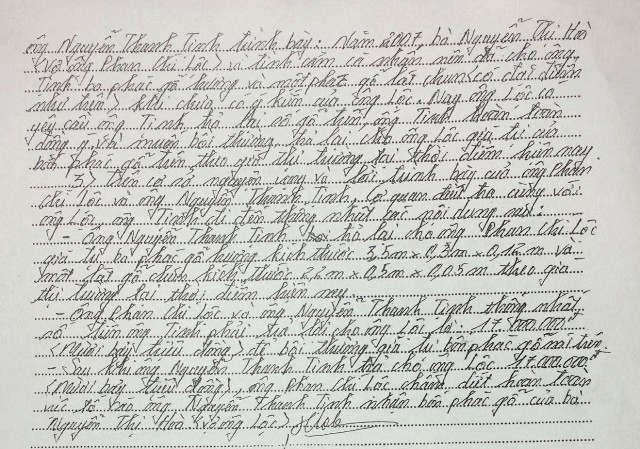 ông Nguyễn Thanh Tịnh trình bày: Năm 2007, bà Nguyễn Thị Hoà
<Vợ ông Phan Chí Lộc> vì tình cảm cá nhân nên đã cho ông
Tịnh ba phác gỗ hương và một phát gỗ lát chun <có đặc điểm
như trên> khi chưa có ý kiến của ông Lộc. Nay ông Lộc có
yêu cầu ông Tịnh trả lại số gỗ trên, ông Tịnh hoàn toàn
đồng ý và muốn bồi thường, trả lại cho ông Lộc giá trị của
bốn phác gỗ trên theo giá thị trường tại thời điểm hiện nay
3> Trên cơ sở nguyện vọng và lời trình bày của ông Phan
Chí Lộc và ông Nguyễn Thanh Tịnh, cơ quan điều tra cùng với
ông Lộc, ông Tịnh đi đến thống nhất các nội dung sau:
- Ông Nguyễn Thanh Tịnh trả lại cho ông Phan Chí Lộc
giá trị ba phác gỗ hương kích thước 3,5m x 0,3m x 0,12m và
một lát gỗ chun kích thước 2,2m x 0,5m x 0,05m theo giá
thị trường tại thời điểm hiện nay
- Ông Phan Chí Lộc và ông Nguyễn Thanh Tịnh thống nhất
số tiền ông Tịnh phải trả lại cho ông Lộc là: 17.000.000đ
<Mười bảy triệu đồng> để bồi thường giá trị bốn phác gỗ nói trên.
- Sau khi ông Nguyễn Thanh Tịnh trả cho ông Lộc 17.000.000đ
<Mười bảy triệu đồng>, ông Phan Chí Lộc chấm dứt hoàn toàn
việc tố cáo ông Nguyễn Thanh Tịnh nhận bốn phác gỗ của bà
Nguyễn Thị Hoà <vợ ông Lộc>